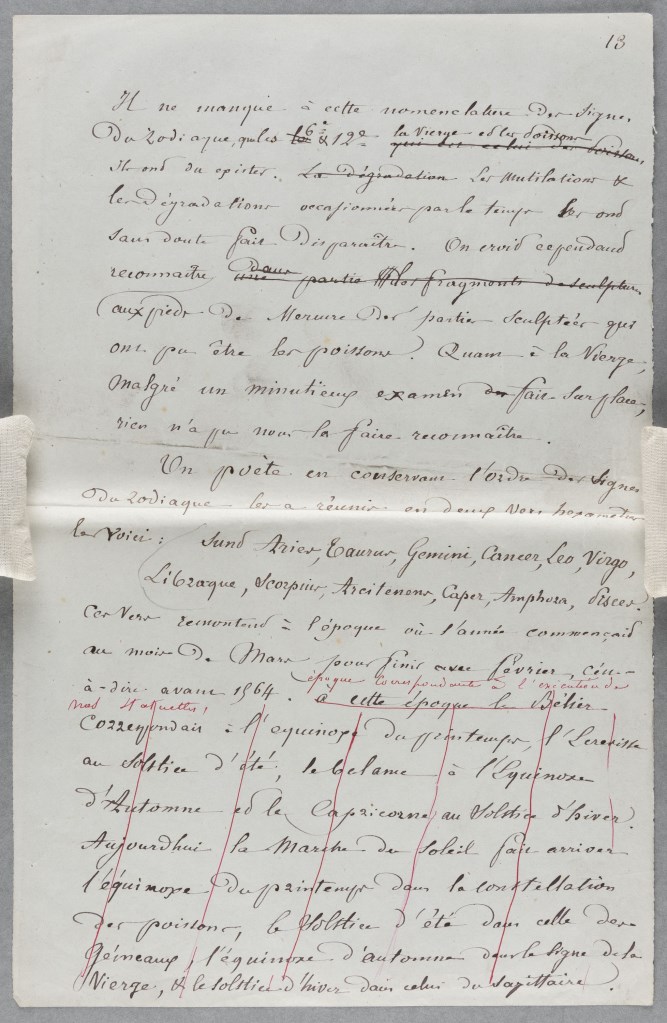 13
Il ne manque à cette nomenclature des signes
du Zodiaque, que les 6e & 12e la Vierge et les poissons qui est celui des poissons
ils ont du exister. La Dégradation Les Mutilations &
les Dégradations occasionnées par le temps les ont
sans doute fait Disparaître. On croit cependant
reconnaître dans une partie des fragments de sculpture
aux pieds de Mercure des parties sculptées qui
ont pu être les poissons. Quant à la Vierge,
malgré un minutieux examen fait sur place,
rien n'a pu nous la faire reconnaître.
Un poète en conservant l'ordre des signes
du Zodiaque les a réunis en deux vers hexamètres
les voici : Sunt Aries, Taurus, Gemini, Cancer, Leo, Virgo,
Libraque, Scorpius, Arcitenens, Caper, Amphora, Pisces.
Ces Vers remontent à l'époque où l'année commençait
au mois de Mars pour finir avec février, c'est-
à-dire avant 1564 époque correspondante à l'exécution de
nos statuettes, à cette époque le Bélier
Correspondait à l'équinoxe du printemps, l'Ecrevisse
au Solstice d'été, la balance à l'Equinoxe
d'Automne et le Capricorne au Solstice d'hiver.
Aujourdhui la Marche du Soleil fait arriver
l'équinoxe du printemps dans la constellation
des poissons, le Solstice d'été dans celle des
Gémeaux, l'équinoxe d'automne dans le signe de la
Vierge, & le solstice d'hiver dans celui du sagittaire.